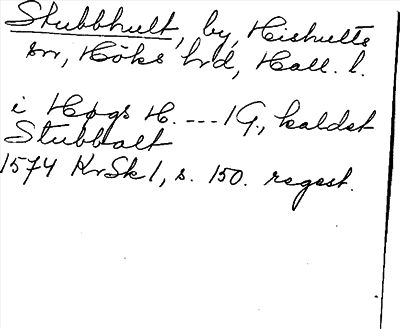 Stubbhult, by, Hishults
sn, Höks hrd, Hall. l.
i Høgs H. --- 1 G., kaldet
Stubbalt
1574 KrSk 1, s. 150. regest.